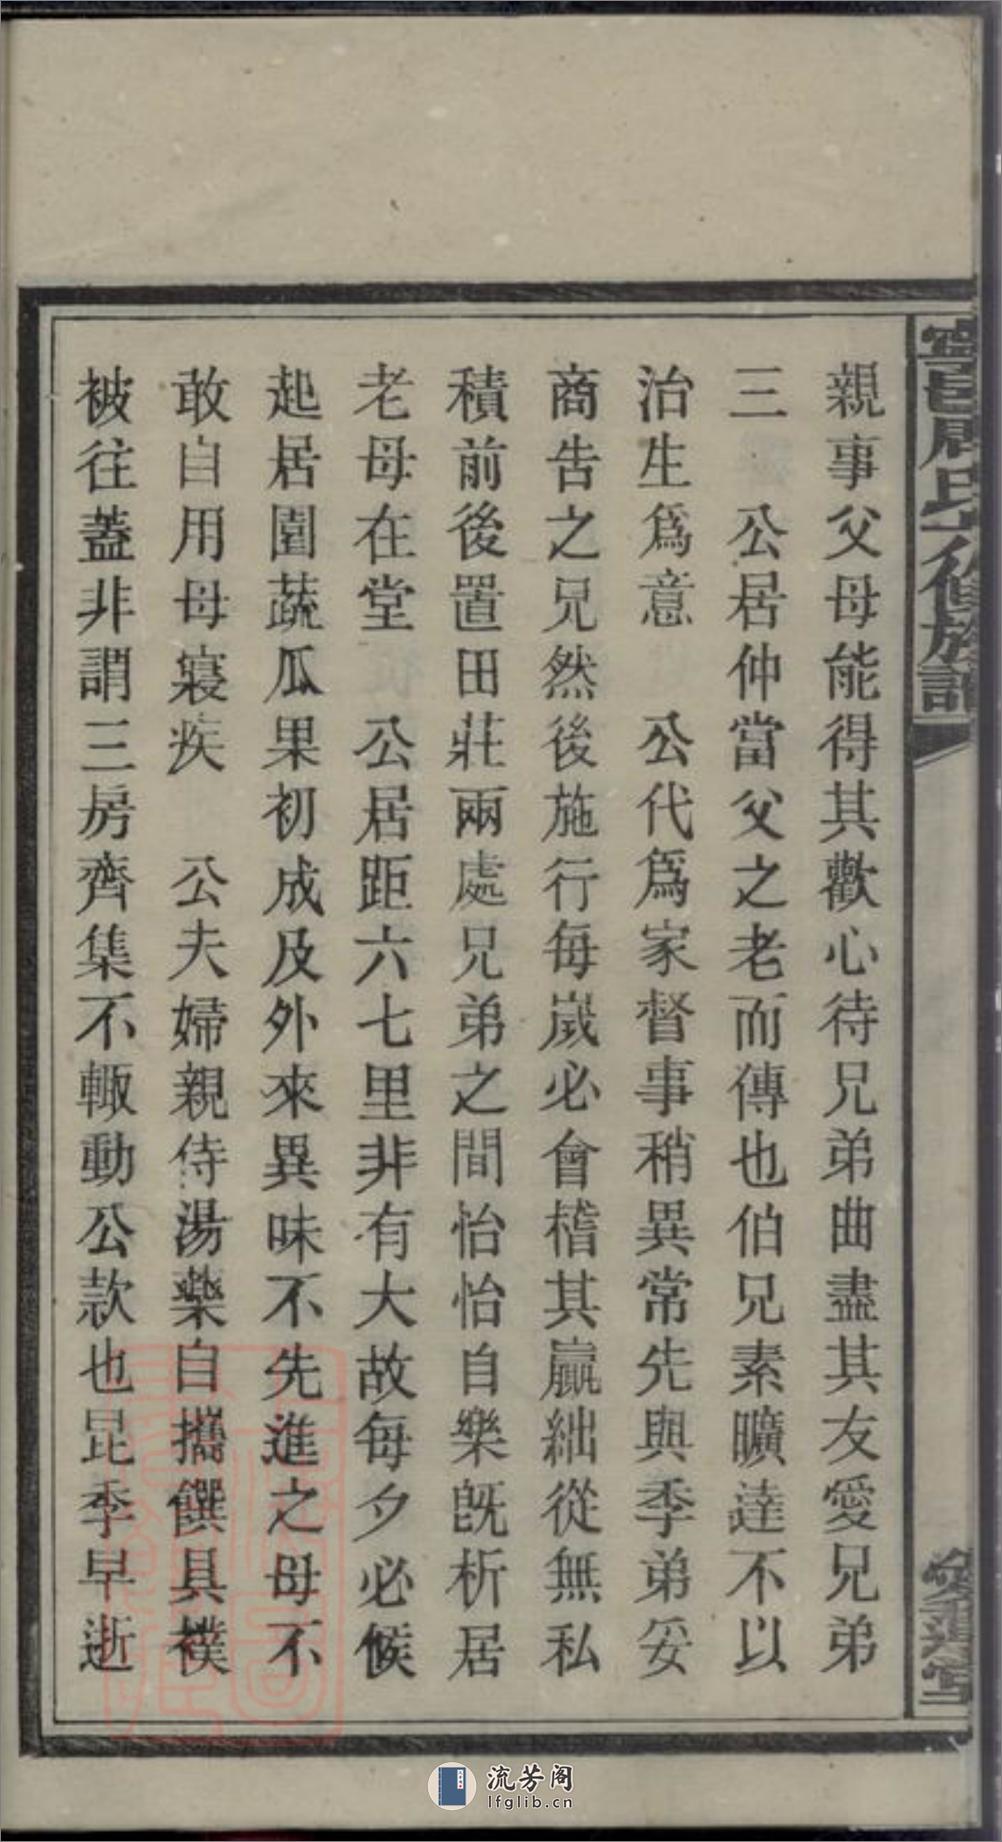 寧邑周氏六修族譜
親事父母能得其歡心待兄弟曲盡其友愛兄弟
三　公居仲當父之老而傳也伯兄素曠達不以
治生爲意　公代爲家督事稍異常先與季弟妥
商告之兄然後施行每歲必會稽其贏絀從無私
積前後置田莊兩處兄弟之間怡怡自樂旣析居
老母在堂　公居距六七里非有大故每夕必候
起居園蔬瓜果初成及外來異味不先進之母不
敢自用母寢疾　公夫婦親侍湯藥自攜饌具襆
被往蓋非謂三房齊集不輙動公款也昆季早逝
流芳阁
lfglib.cn